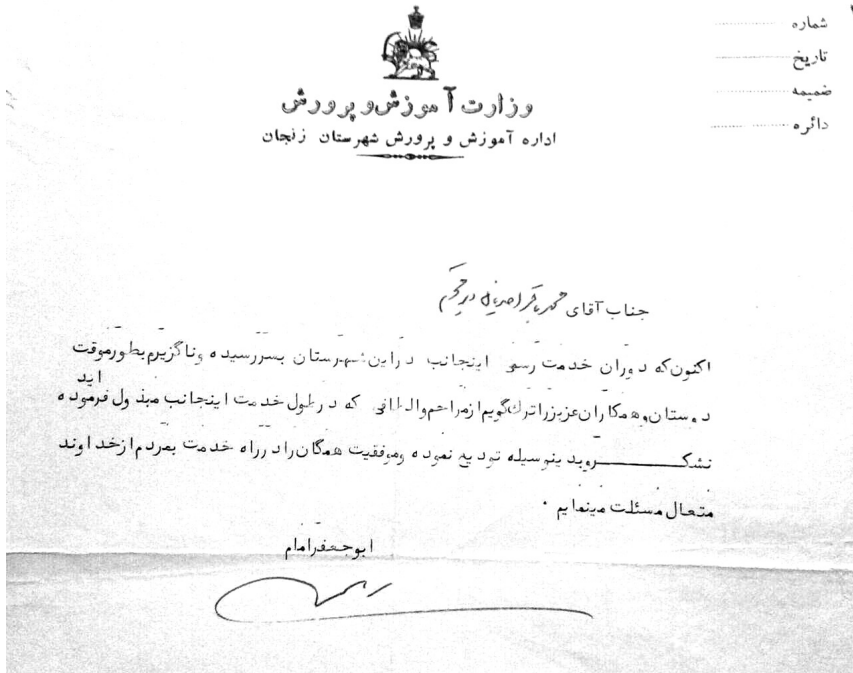 شماره
تاریخ
ضمیمه
دائره
وزارت آموزش و پرورش
اداره آموزش و پرورش شهرستان زنجان
جناب آقای محمد باقر احمدیان دبیر محترم
اکنون که دوران خدمت رسمی اینجانب در این شهرستان بسر رسیده و ناگزیرم بطور موقت
دوستان و همکاران عزیز را ترک گویم از مراحم و الطافی که در طول خدمت اینجانب مبذول فرموده اید
تشکر و بدینوسیله تودیع نموده و موفقیت همگان را در راه خدمت بمردم از خداوند
متعال مسئلت مینمایم .
ابوجعفر امام